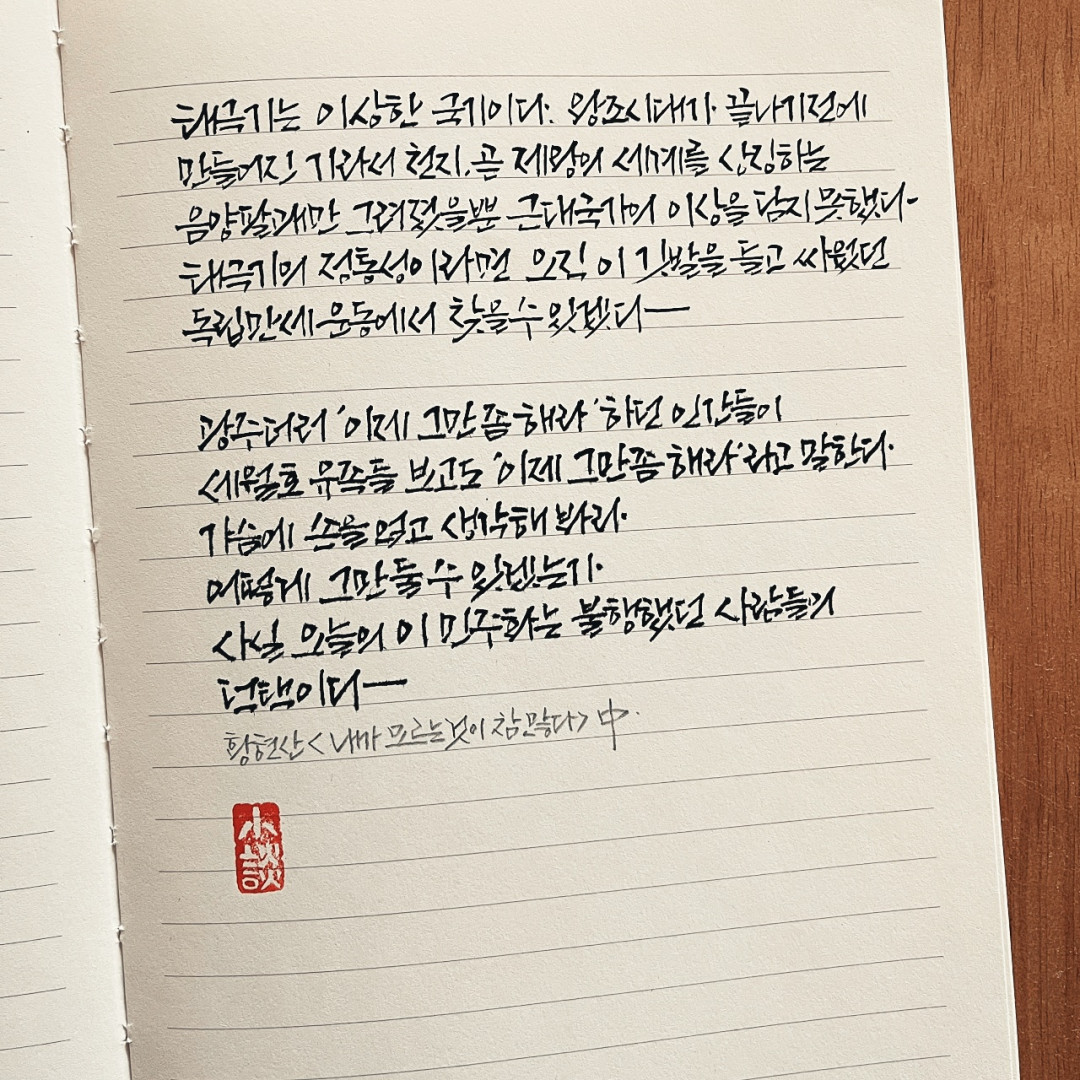 태극기는 이상한 국기이다. 왕조시대가 끝나기전에
만들어진 기라서 천지, 곧 제왕의 세계를 상징하는
음양팔괘만 그려졌을뿐 근대국가의 이상을 담지 못했다-
태극기의 정통성이라면 오직 이 깃발을 들고 싸웠던
독립만세운동에서 찾을수있겠다—
광주더러 '이제 그만좀해라' 하던 인간들이
세월호 유족들 보고도 '이제 그만좀 해라'라고 말한다.
가슴에 손을 얹고 생각해 봐라.
어떻게 그만둘수 있겠는가.
사실 오늘의 이 민주화는 불행했던 사람들의
덕택이다—
황현산 <내가 모르는것이 참많다> 中.
小談